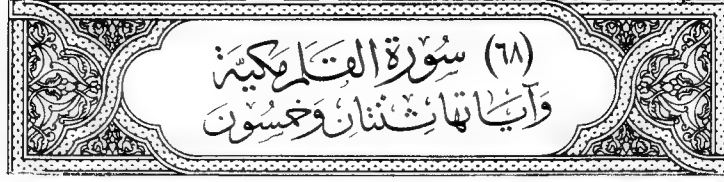 (٦٨) سُورَةُ القَلَم مَكِيَّة
وَآيَاتُهَا ثِنْتَانِ وَخَمْسُونَ